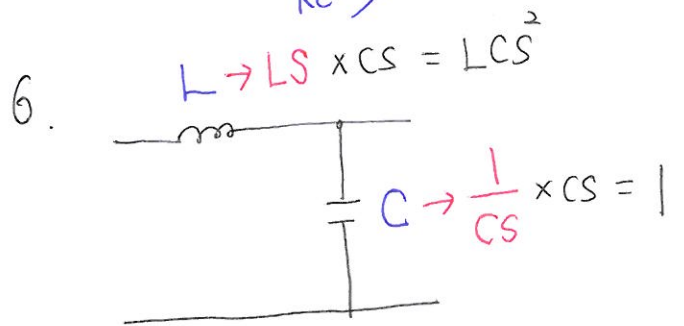 RC
L → LS × CS = LCS²
6.
C → 1/CS × CS = 1